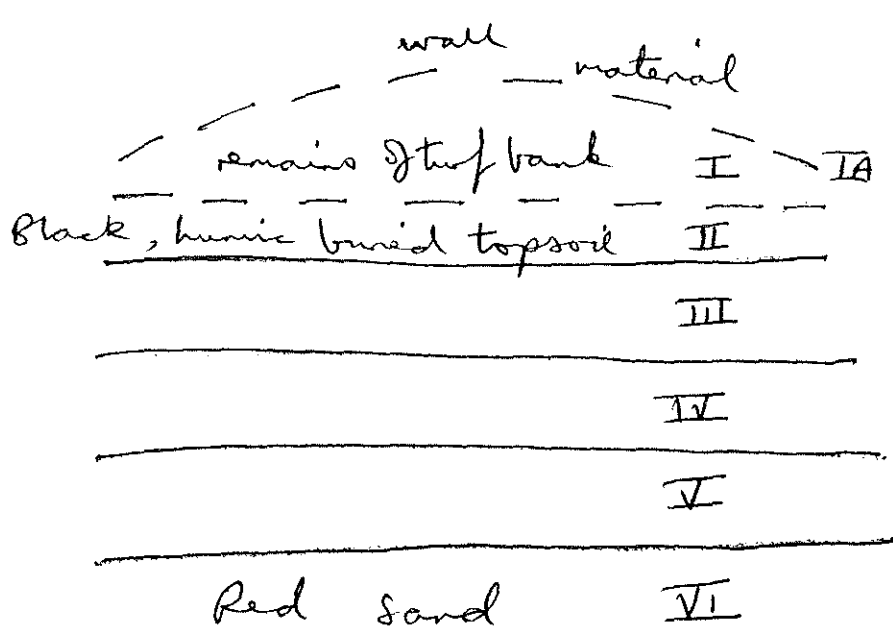 wall material
remains of turf bank I IA
Black, humic buried topsoil II
III
IV
V
Red sand VI